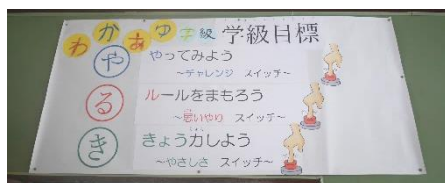 わかあゆ学級 学級目標
や やってみよう
～チャレンジ スイッチ～
る ルールをまもろう
～思いやり スイッチ～
き きょう力しよう
～やさしさ スイッチ～